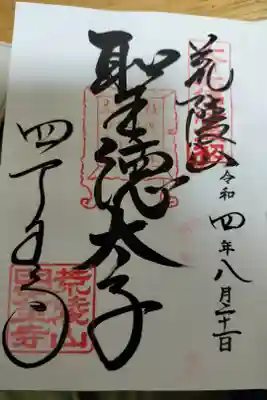 荒陵山
令和四年八月二十一日
聖徳太子
四天王寺
荒陵山
四天王寺